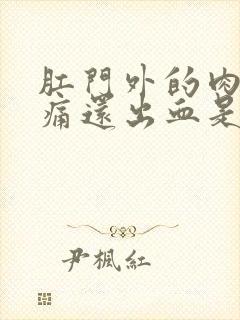 肛門外的肉
痛還出血是
尹楓紅